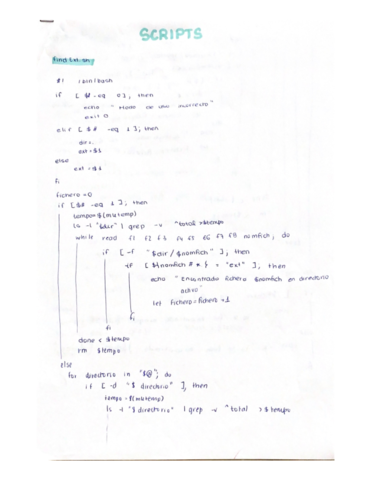 SCRIPTS
find Ext.sh
#! /bin/bash
if [ $# -eq 0 ], then
echo " Modo de uso incorrecto"
exit 0
elif [ $# -eq 1 ], then
dir=.
ext=$1
else
ext=$1
fi
fichero=0
if [$# -eq 1 ]; then
tempo=$(mktemp)
ls -l "$dir" | grep -v "^total" >$tempo
while read f1 f2 f3 f4 f5 f6 f7 f8 nomfich, do
if [ -f "$dir/$nomfich" ], then
if [ ${nomfich#*.} = "ext" ], then
echo "Encontrado fichero $nomfich en directorio
activo"
let fichero=fichero+1
fi
fi
done < $tempo
rm $tempo
else
for directorio in "$@", do
if [ -d "$directorio" ], then
tempo=$(mktemp)
ls -l "$directorio" | grep -v ^total >$tempo